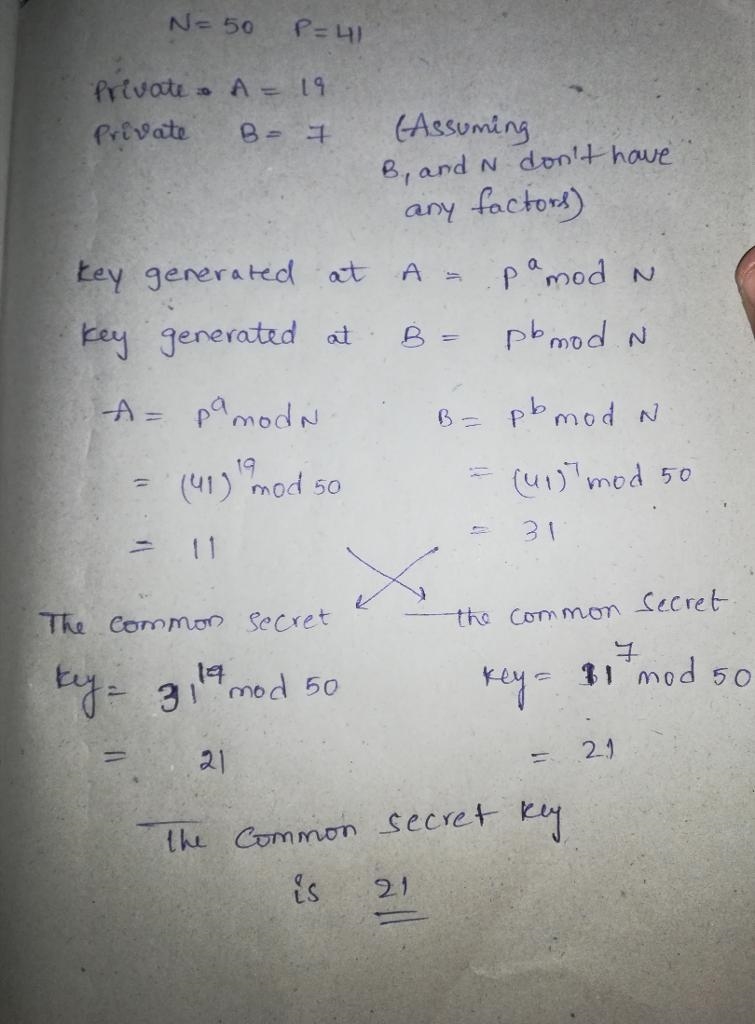 N= 50 P= 41
Private A = 19
Private B = 7 (Assuming
B, and N don't have
any factors)
key generated at A = p^a mod N
key generated at B = p^b mod N
A = p^a mod N B = p^b mod N
= (41)^19 mod 50 = (41)^7 mod 50
= 11 = 31
The common secret the common secret
key = 31^19 mod 50 key = 11^7 mod 50
= 21 = 21
The common secret key
is 21